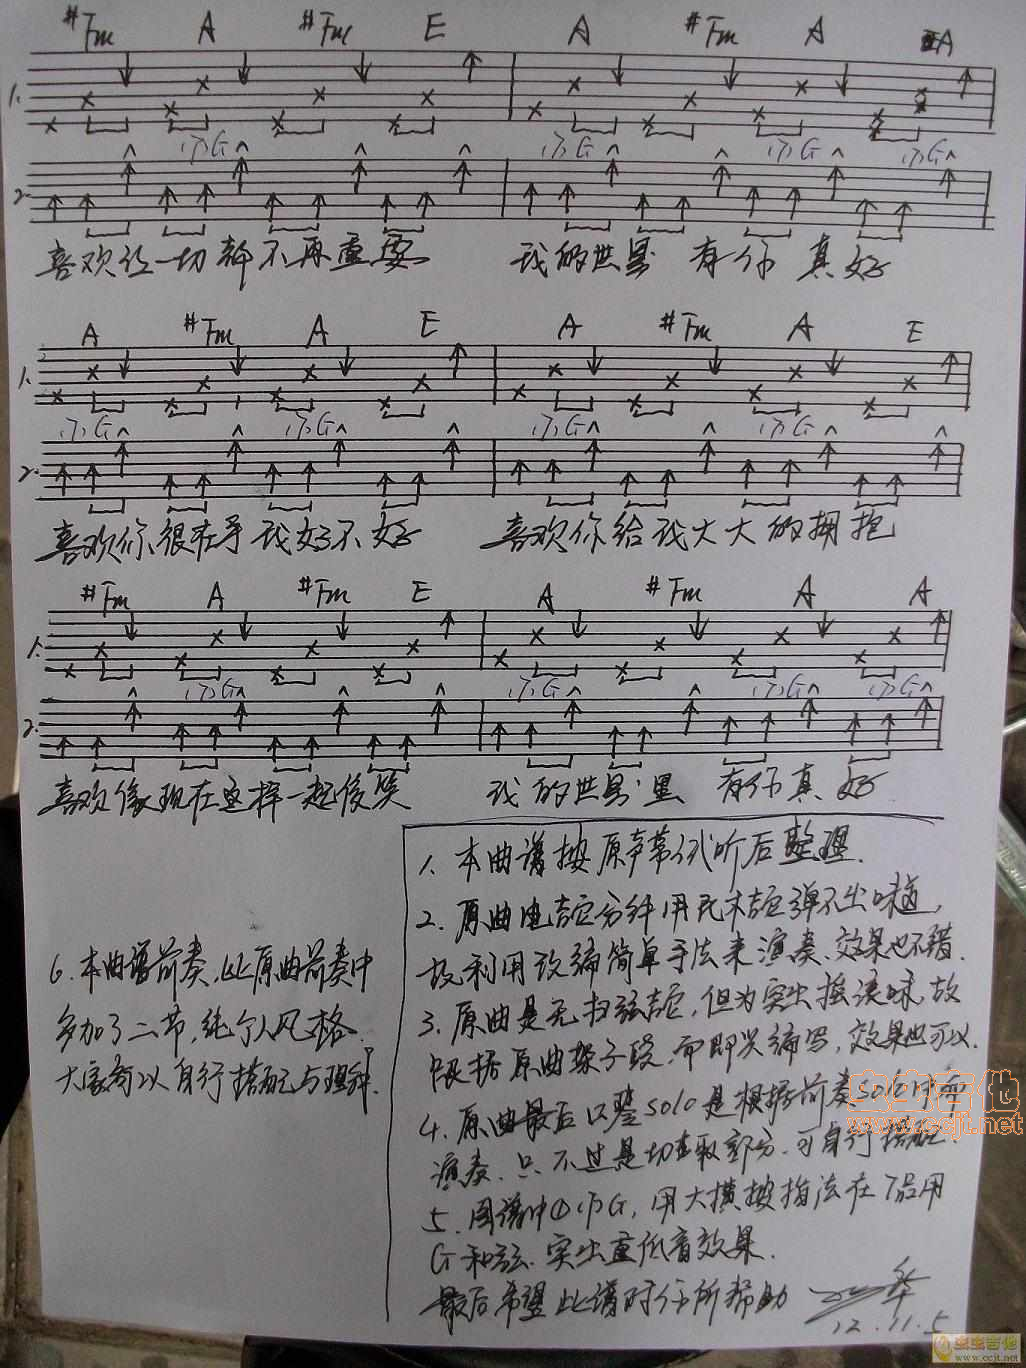 #Fm A #Fm E A #Fm A A
1.
(下)G (下)G (下)G (下)G
2.
喜欢让一切都不再重要 我的世界 有你 真好
A #Fm A E A #Fm A E
1.
(下)G (下)G (下)G (下)G
2.
喜欢你很在乎我好不好 喜欢你给我大大的拥抱
#Fm A #Fm E A #Fm A A
1.
(下)G (下)G (下)G (下)G
2.
喜欢像现在这样一起傻笑 我的世界里 有你真好
1. 本曲谱按原声带试听后整理.
2. 原曲电吉它分解用民木吉它弹不出味道,
故利用改编简单手法来演奏.效果也不错.
3. 原曲是无扫弦吉它,但为突出摇滚味,故
根据原曲架子鼓.而即兴编写,效果也可以.
4. 原曲最后solo是根据前奏solo
演奏.只不过是切取部分.可自行搭配.
5. 图谱中(下)G,用大横按指法在7品用
G和弦.突出重低音效果.
最后希望此谱对你所帮助
12.11.5
6. 本曲谱前奏,比原曲前奏中
多加了二节,纯个人风格.
大家可以自行搭配与理解.
虫虫吉他
www.ccjt.net
虫虫吉他
www.ccjt.net